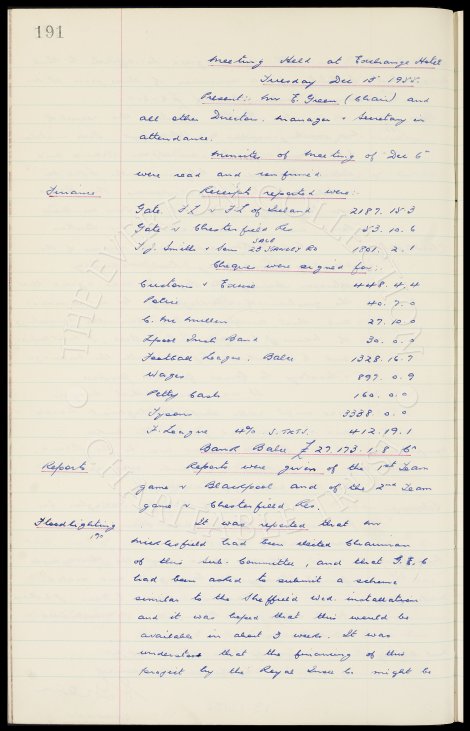 191
Meeting Held at Exchange Hotel
Tuesday Dec 1955.
Present:- Mr E. Green (Chair) and
all other Directors. Manager & Secretary in
attendance.
Minutes of Meeting of Dec 6
were read and confirmed.
Finance Receipts reported were:-
Gate F.L v F.L of Ireland 2187. 15. 3
Gate v Chesterfield Res 153. 10. 6
T. J. Smith & Son SALE 28 STANLEY RD 1801. 2. 1
Cheques were signed for:-
Customs & Excise 448. 4. 4
Police 40. 7. 0
C. McMullen 27. 10. 0
Lpool Irish Band 30. 0. 0
Football League. Balce 1328. 16. 7
Wages 897. 0. 9
Petty Cash 160. 0. 0
Tysons 3338. 0. 0
F. League 4% 412. 19. 1
Bank Balce £ 27. 173. 1. 8.
Reports Reports were given of the 1st Team
game v Blackpool and of the 2nd Team
game v Chesterfield Res.
Floodlighting It was reported that Mr
had been elected Chairman
of this Sub. Committee, and that G.E.C
had been asked to submit a scheme
similar to the Sheffield Wed. installation
and it was hoped that this would be
available in about 3 weeks. It was
understood that the financing of this
project by the Royal Insce Co. might be